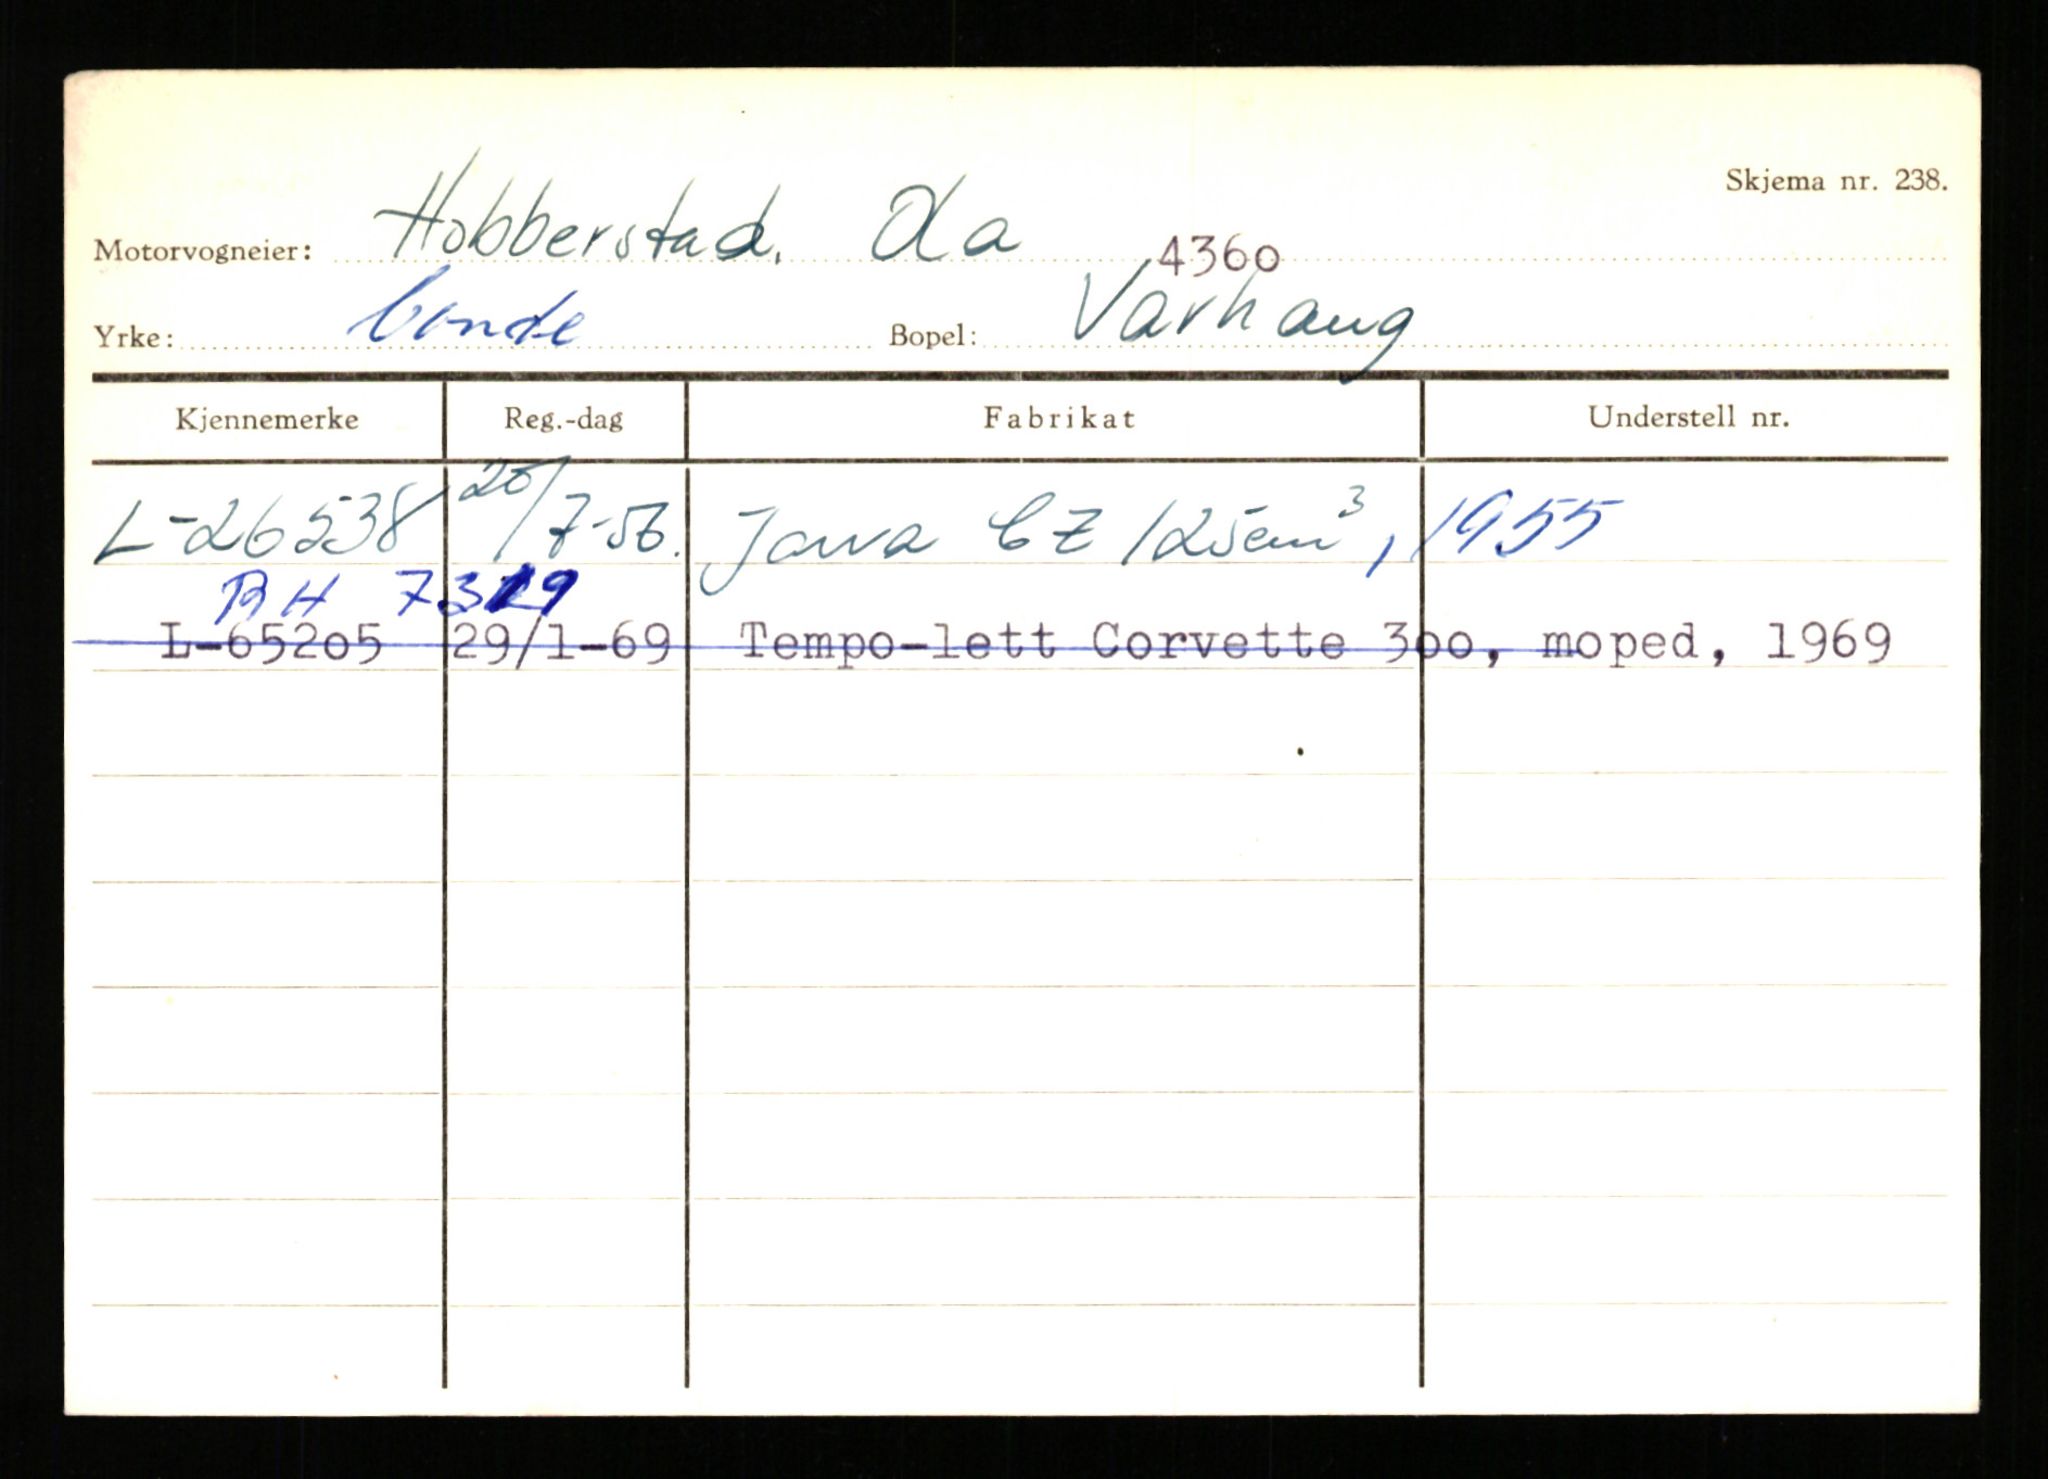 Skjema nr. 238.
Motorvogneier: Hobberstad, Ola 4360
Yrke: bonde Bopel: Varhaug
Kjennemerke Reg.-dag Fabrikat Understell nr.
L-26538 20/7-56. Jawa CZ 125cm³, 1955
RH 7319
L-65205 29/1-69 Tempo-lett Corvette 300, moped, 1969